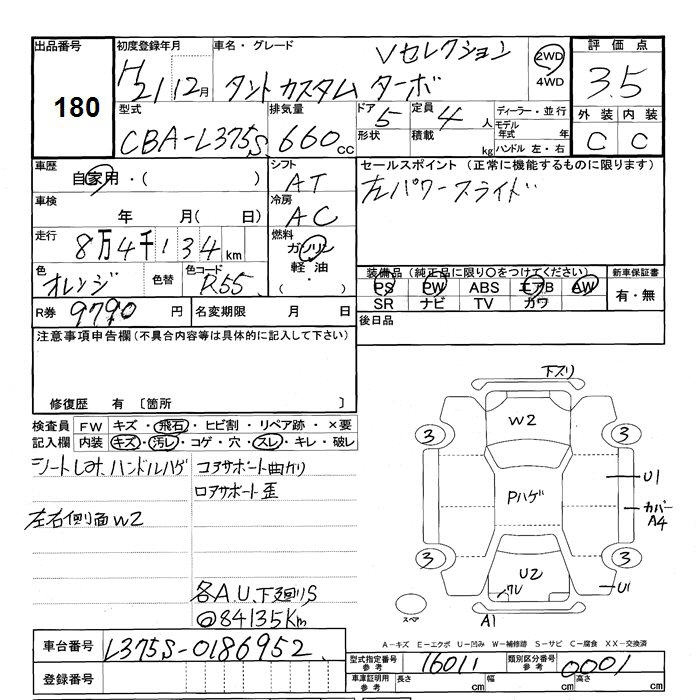 出品番号 初度登録年月 車名・グレード 評価点
180 H21 12月 タントカスタム ターボ Vセレクション 2WD 4WD 3.5
型式 排気量 ドア 定員 ディーラー・並行 外装 内装
CBA-L375S 660cc 5 4人 モデル年式 年 C C
形状 積載 kg ハンドル 左・右
車歴 シフト セールスポイント(正常に機能するものに限ります)
自家用・( ) AT 左パワースライド
車検 冷房
年 月( 日) AC
走行 燃料
8万4千134km ガソリン
軽油
・
( )
色 色替 色コード 装備品(純正品に限り〇をつけてください) 新車保証書
オレンジ R55 PS PW ABS エアB AW 有・無
SR ナビ TV カワ
R券 9790円 名変期限 月 日 後日品
注意事項申告欄(不具合内容等は具体的に記入して下さい)
修復歴 有 〔箇所 〕
検査員 FW キズ・飛石・ヒビ割・リペア跡・×要
記入欄 内装 キズ・汚レ・コゲ・穴・スレ・キレ・破レ
シートしみ、ハンドルハゲ コアサポート曲リ
ロアサポート歪
左右側面W2
各A.U.下廻りS
@84135Km
下スリ
W2
3 3
Pハゲ
U1
カバーA4
3 3
U2
ワレ
U1
スペア
A1
A-キズ E-エクボ U-凹み W-補修跡 S-サビ C-腐食 XX-交換済
車台番号 L375S-0186952
型式指定番号 参考 16011 類別区分番号 参考 0001
登録番号 車庫証明用 参考 長さ cm 幅 cm 高さ cm